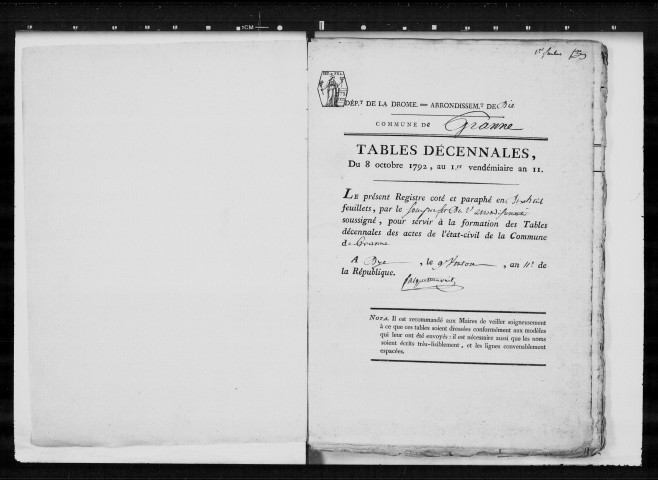 1er feuillet
DÉP.T DE LA DROME. — ARRONDISSEM.T DE Die
COMMUNE DE Granne
TABLES DÉCENNALES,
Du 8 octobre 1792, au 1.er vendémiaire an 11.
LE présent Registre coté et paraphé en
feuillets, par le Sous préfet De l'arrondissement
soussigné, pour servir à la formation des Tables
décennales des actes de l'état-civil de la Commune
de Granne
A Die, le 9 , an 11e de
la République.
NOTA. Il est recommandé aux Maires de veiller soigneusement
à ce que ces tables soient dressées conformément aux modèles
qui leur ont été envoyés : il est nécessaire aussi que les noms
soient écrits très-lisiblement, et les lignes convenablement
espacées.